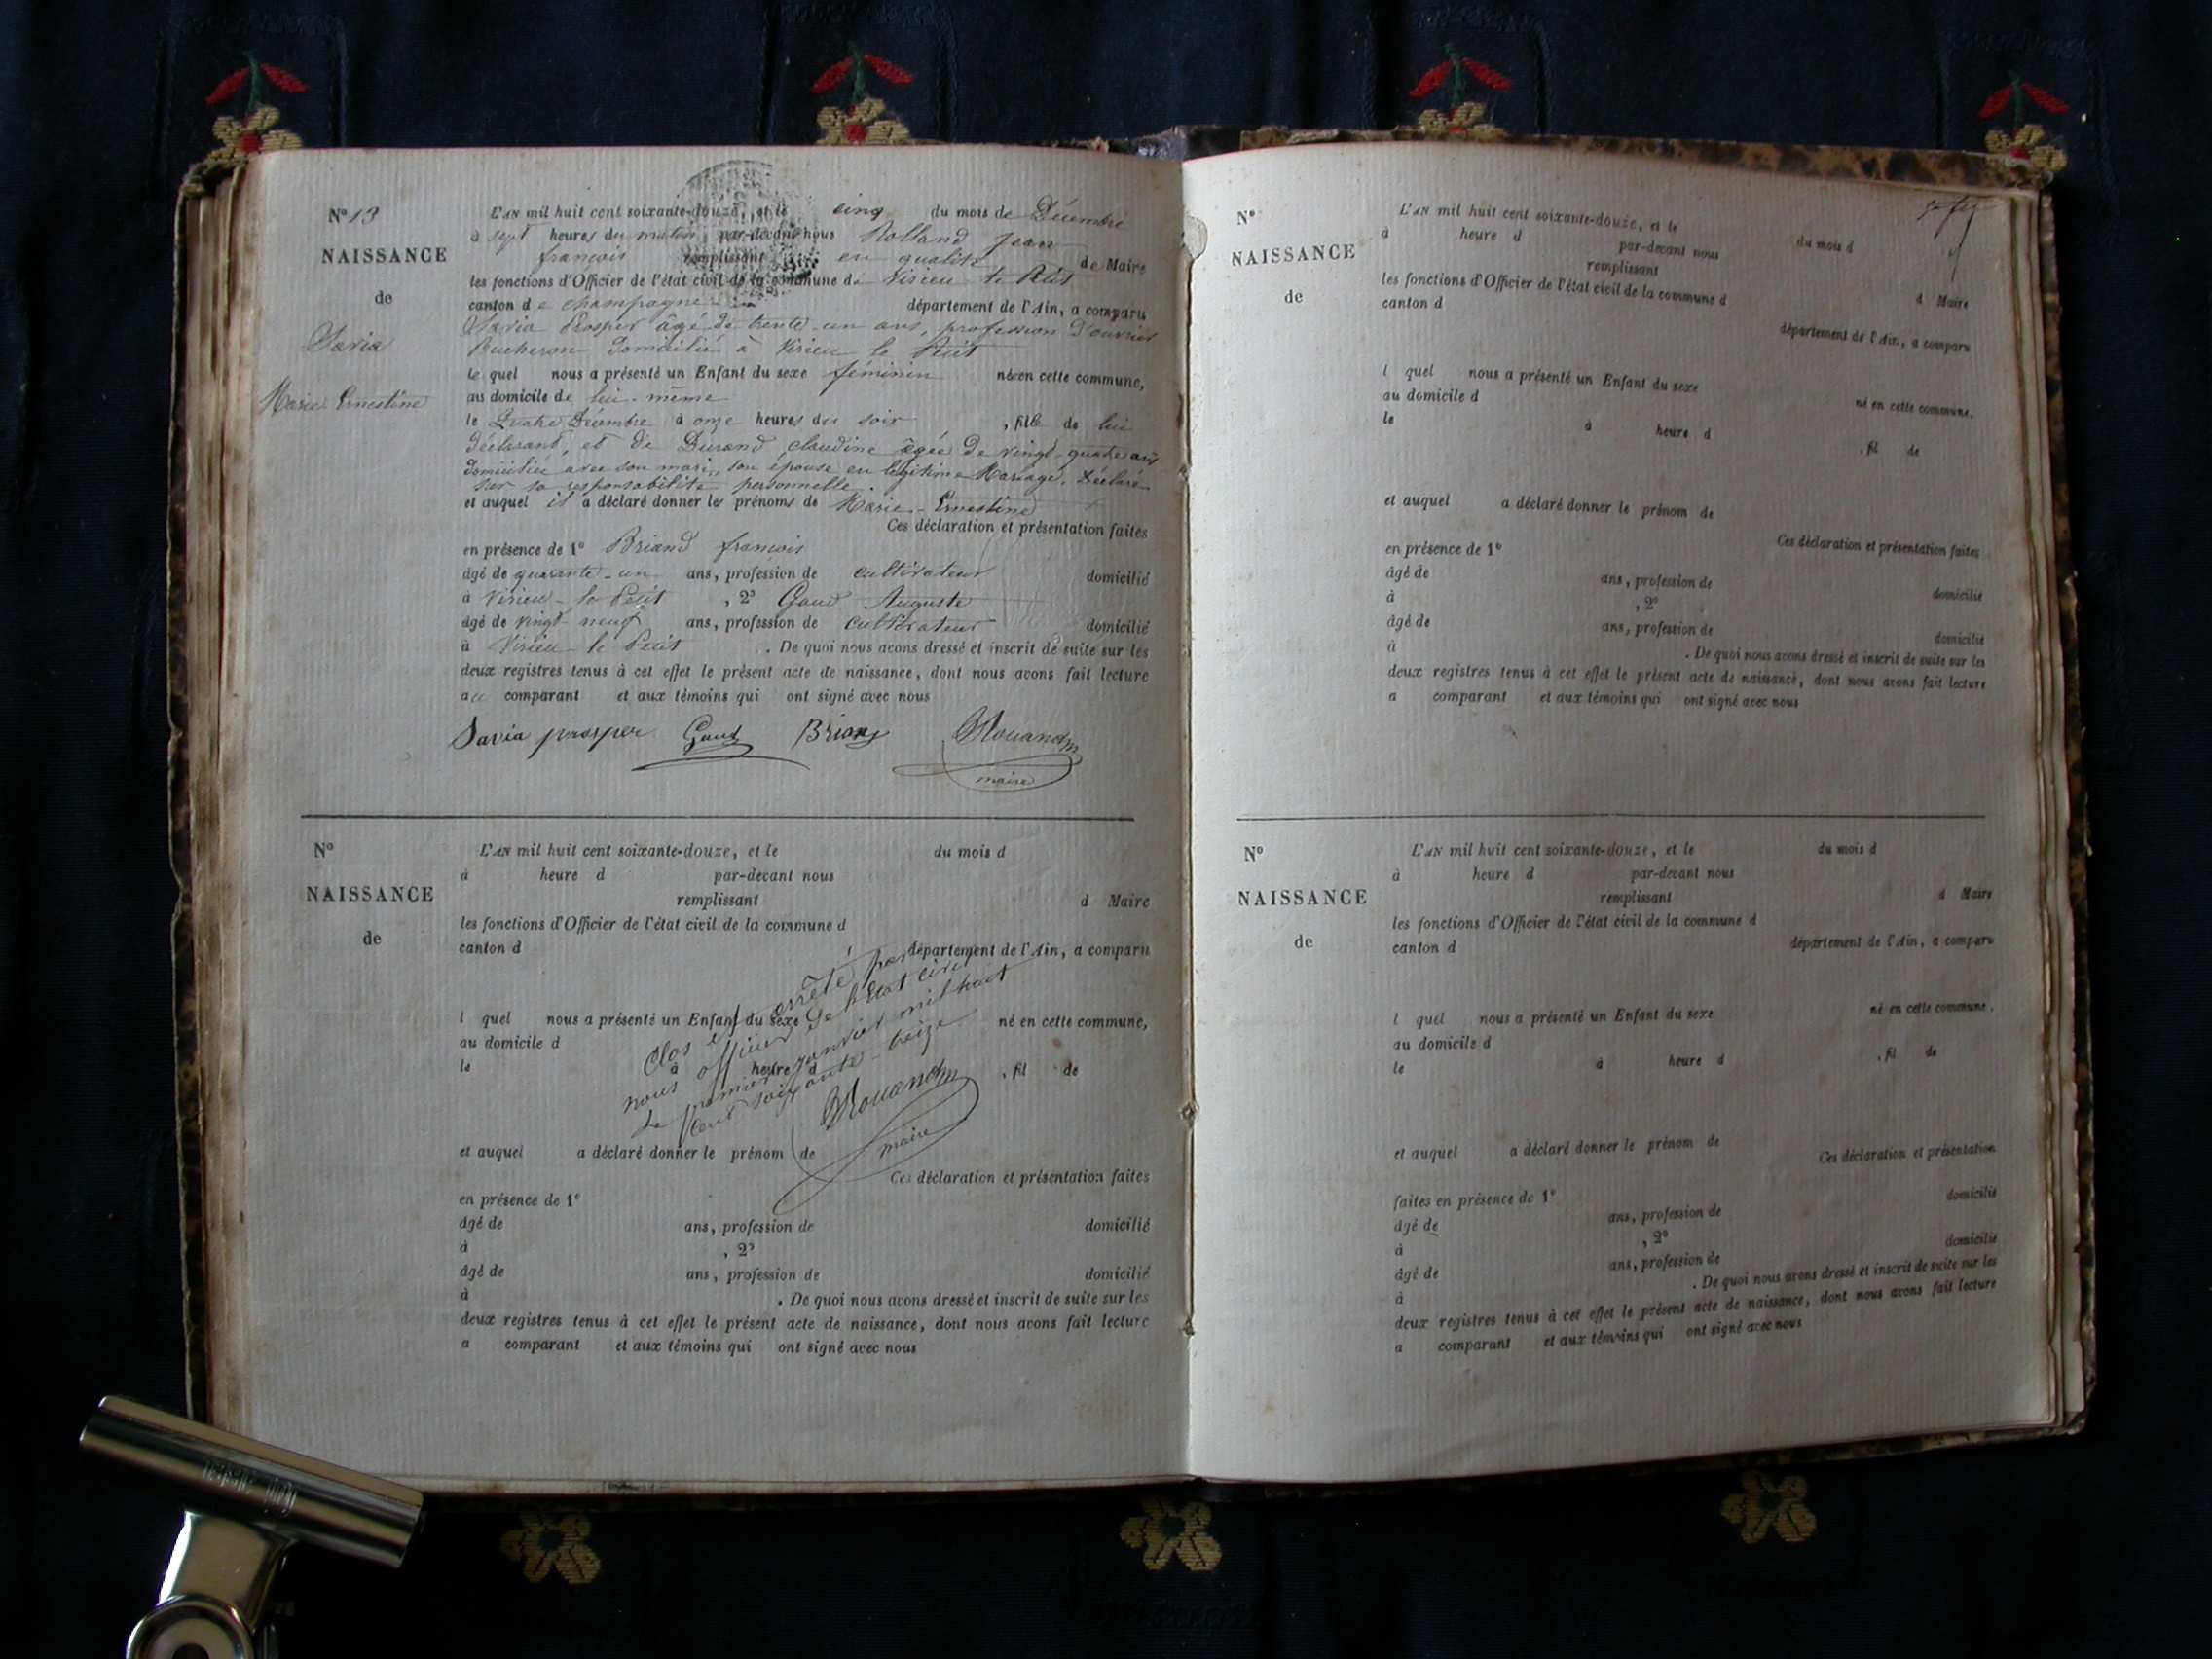 N° 13
NAISSANCE
de
Savia
Marie Ernestine
L'AN mil huit cent soixante-douze, et le cinq du mois de Décembre
à sept heures du matin, par-devant nous Rolland Jean
francois remplissant en qualité de Maire
les fonctions d'Officier de l'état civil de la commune de Virieu le Petit
canton de champagne département de l'Ain, a comparu
Savia Prosper âgé de trente-un ans, profession D'ouvrier
Bucheron domicilié à Virieu le Petit
le quel nous a présenté un Enfant du sexe féminin né en cette commune,
au domicile de lui-même
le Quatre Décembre à onze heures du soir, fille de lui
déclarant, et de Durand claudine âgée de vingt-quatre ans
domiciliée avec son mari, son épouse en légitime Mariage, déclaré
sur sa responsabilité personnelle.
et auquel il a déclaré donner les prénoms de Marie-Ernestine
Ces déclaration et présentation faites
en présence de 1° Briand francois
âgé de quarante-un ans, profession de cultivateur domicilié
à Virieu-le Petit, 2° Gaud Auguste
âgé de vingt-neuf ans, profession de cultivateur domicilié
à Virieu-le Petit. De quoi nous avons dressé et inscrit de suite sur les
deux registres tenus à cet effet le présent acte de naissance, dont nous avons fait lecture
au comparant et aux témoins qui ont signé avec nous
Savia prosper Gaud Briand
maire
N°
NAISSANCE
de
L'AN mil huit cent soixante-douze, et le du mois d
à heure d par-devant nous
remplissant d Maire
les fonctions d'Officier de l'état civil de la commune d
canton d département de l'Ain, a comparu
l quel nous a présenté un Enfant du sexe né en cette commune,
au domicile d
le à heure d, fil de
Clos et arrêté par
nous officier de l'Etat civil
Le premier janvier mil huit
cent soixante-treize
maire
et auquel a déclaré donner le prénom de
Ces déclaration et présentation faites
en présence de 1°
âgé de ans, profession de domicilié
à , 2°
âgé de ans, profession de domicilié
à . De quoi nous avons dressé et inscrit de suite sur les
deux registres tenus à cet effet le présent acte de naissance, dont nous avons fait lecture
a comparant et aux témoins qui ont signé avec nous
N°
NAISSANCE
de
L'AN mil huit cent soixante-douze, et le du mois d
à heure d par-devant nous
remplissant d Maire
les fonctions d'Officier de l'état civil de la commune d
canton d département de l'Ain, a comparu
l quel nous a présenté un Enfant du sexe né en cette commune,
au domicile d
le à heure d, fil de
et auquel a déclaré donner le prénom de
Ces déclaration et présentation faites
en présence de 1°
âgé de ans, profession de domicilié
à , 2°
âgé de ans, profession de domicilié
à . De quoi nous avons dressé et inscrit de suite sur les
deux registres tenus à cet effet le présent acte de naissance, dont nous avons fait lecture
a comparant et aux témoins qui ont signé avec nous
N°
NAISSANCE
de
L'AN mil huit cent soixante-douze, et le du mois d
à heure d par-devant nous
remplissant d Maire
les fonctions d'Officier de l'état civil de la commune d
canton d département de l'Ain, a comparu
l quel nous a présenté un Enfant du sexe né en cette commune,
au domicile d
le à heure d, fil de
et auquel a déclaré donner le prénom de
Ces déclaration et présentation
faites en présence de 1° domicilié
âgé de ans, profession de
à , 2° domicilié
âgé de ans, profession de
à . De quoi nous avons dressé et inscrit de suite sur les
deux registres tenus à cet effet le présent acte de naissance, dont nous avons fait lecture
a comparant et aux témoins qui ont signé avec nous